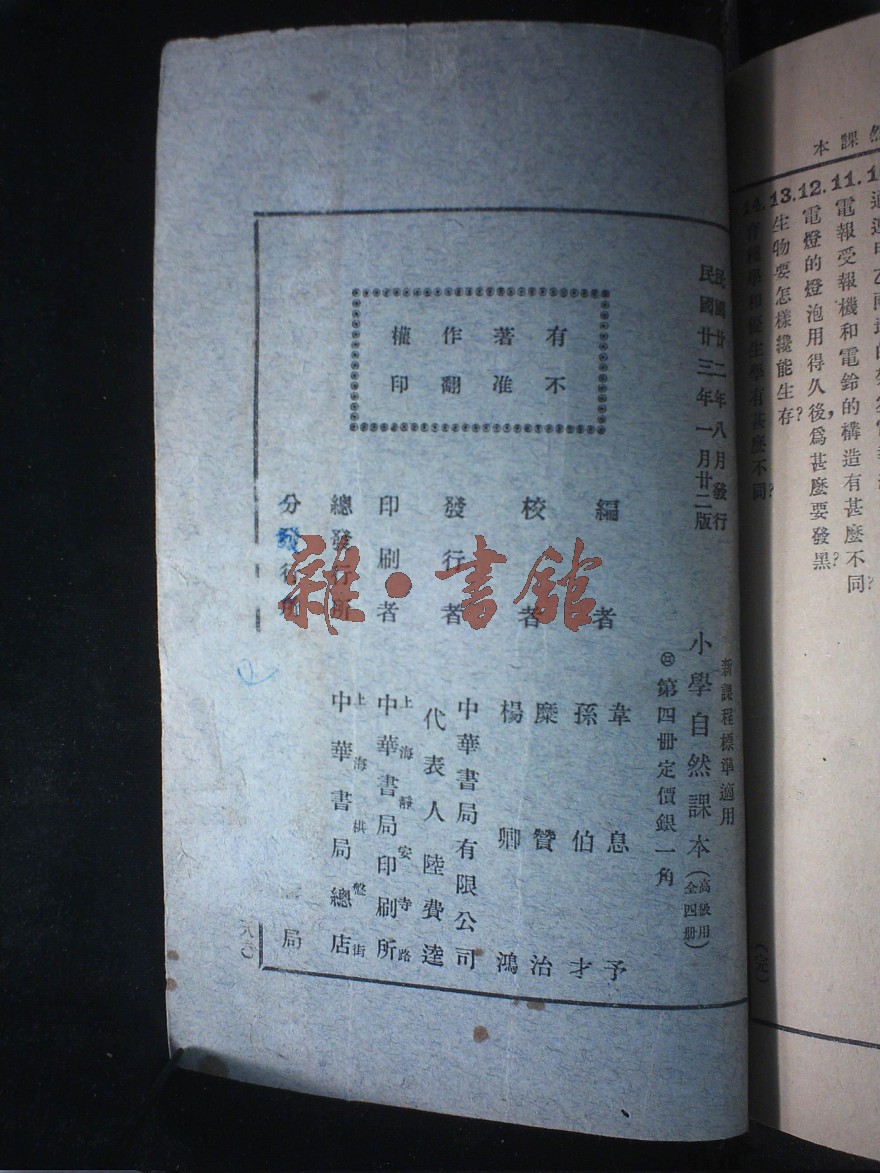 然課本
11.電報受報機和電鈴的構造有甚麼不同?
12.電燈的燈泡用得久後,爲甚麼要發黑?
13.生物要怎樣纔能生存?
14.育種學和優生學有甚麼不同?
民國廿二年八月發行
民國廿三年一月廿二版
新課程標準適用
小學自然課本(高級用全四册)
第四册定價銀一角
有著作權
不准翻印
編者 韋息予
孫伯才
校者 糜贊治
楊卿鴻
發行者 中華書局有限公司
代表人 陸費逵
印刷者 上海靜安寺路
中華書局印刷所
總發行所 上海棋盤街
中華書局總店
分發行所
局
雜·書館